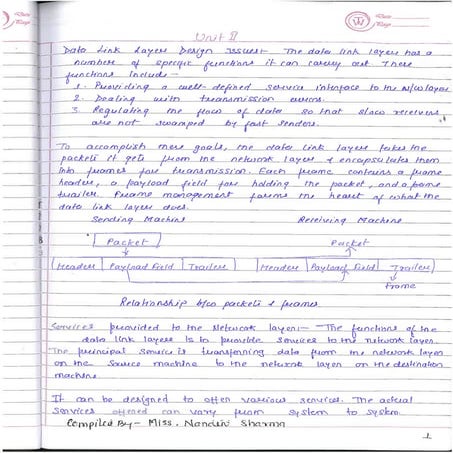 Unit II
Data Link Layer Design Issues:- The data link layer has a
number of specific functions it can carry out. These
functions include:-
1. Providing a well-defined service interface to the n/w layer
2. Dealing with transmission errors.
3. Regulating the flow of data so that slow receivers
are not swamped by fast senders.
To accomplish these goals, the data link layer takes the
packets it gets from the network layer & encapsulates them
into frames for transmission. Each frame contains a frame
header, a payload field for holding the packet, and a frame
trailer. Frame management forms the heart of what the
data link layer does.
Sending Machine Receiving Machine
Packet Packet
Header Payload Field Trailer Header Payload field Trailer
frame
Relationship b/w packets & frames
Services provided to the Network layer:- The functions of the
data link layer is to provide services to the network layer.
The principal service is transferring data from the network layer
on the source machine to the network layer on the destination
machine.
It can be designed to offer various services. The actual
services offered can vary from system to system.
Compiled By:- Miss. Nandini Sharma
1